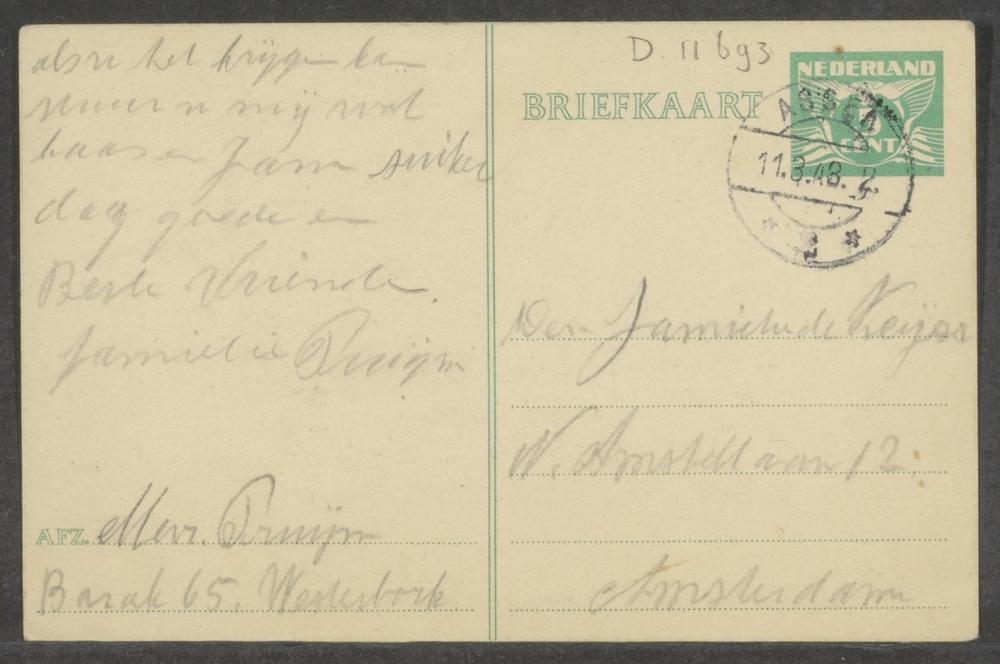 als u het krijgen ka
stuur u mij wat
kaas en Jam suiker
dag goede en
Beste Vriende
familie Pruijm
AFZ. Mevr. Pruijm
Barak 65. Westerbork
D. 11 693
NEDERLAND
CENT
BRIEFKAART
ASSEN
11.3.43. 2
Familie de
N. Amstellaan 12.
Amsterdam